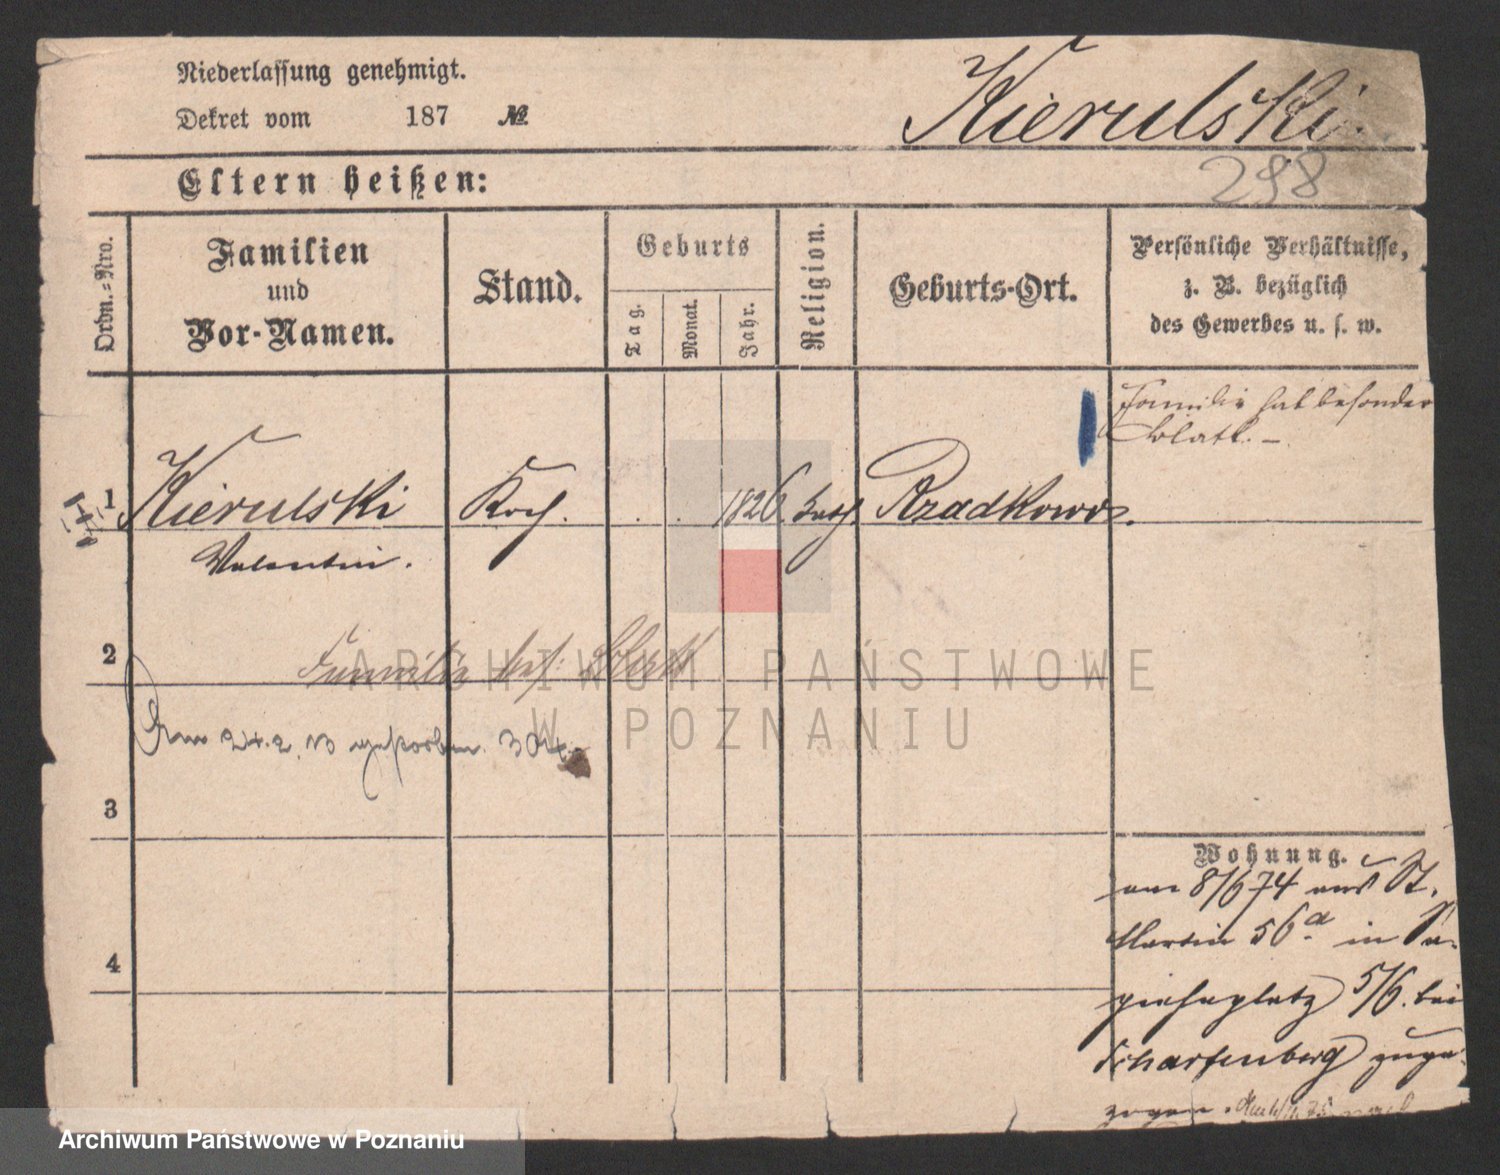 Niederlassung genehmigt.
Dekret vom 187 №
Kierulski.
298
Eltern heißen:
Ordn.-Nro.
Familien
und
Vor-Namen.
Stand.
Geburts
Tag.
Monat.
Jahr.
Religion.
Geburts-Ort.
Persönliche Verhältnisse,
z. B. bezüglich
des Gewerbes u. s. w.
Familie hat besonder
Blatt. –
1 Kierulski Koch. . . 1826. kath Rzadkowo.
Valentin.
2 Familie bes: Blatt
ARCHIWUM PAŃSTWOWE
W POZNANIU
Am 24.2.13 gestorben. 304.
3
Wohnung.
am 8/6 74 aus St.
Martin 56a in Sa-
piehaplatz 5/6. bei
Scharfenberg zuge-
zogen.
4
Archiwum Państwowe w Poznaniu